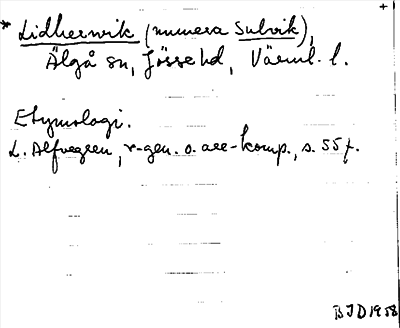 +
* Lidherwik (numera Sulvik),
Älgå sn, Jösse hd, Värml. l.
Etymologi.
L. Alfvegren, r-gen. o. are-komp., s. 55 f.
BJD 1958